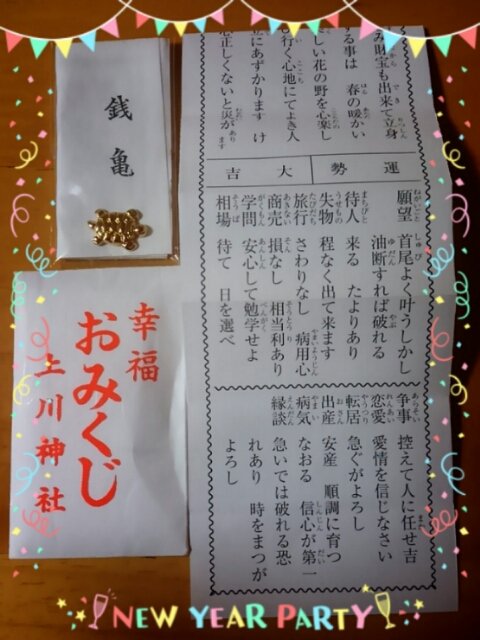 銭亀
み財宝も出来て立身
する事は 春の暖かい
しい花の野を心楽し
行く心地にてよき人
にあずかります け
正しくないと災があります
運勢 大吉
願望 首尾よく叶うしかし
油断すれば破れる
待人 来る たよりあり
失物 程なく出て来ます
旅行 さわりなし 病用心
商売 損なし 相当利あり
学問 安心して勉学せよ
相場 待て 日を選べ
争事 控えて人に任せ吉
恋愛 愛情を信じなさい
転居 急ぐがよろし
出産 安産 順調に育つ
病気 なおる 信心が第一
縁談 急いでは破れる恐
れあり 時をまつが
よろし
幸福
おみくじ
上川神社
NEW YEAR PARTY